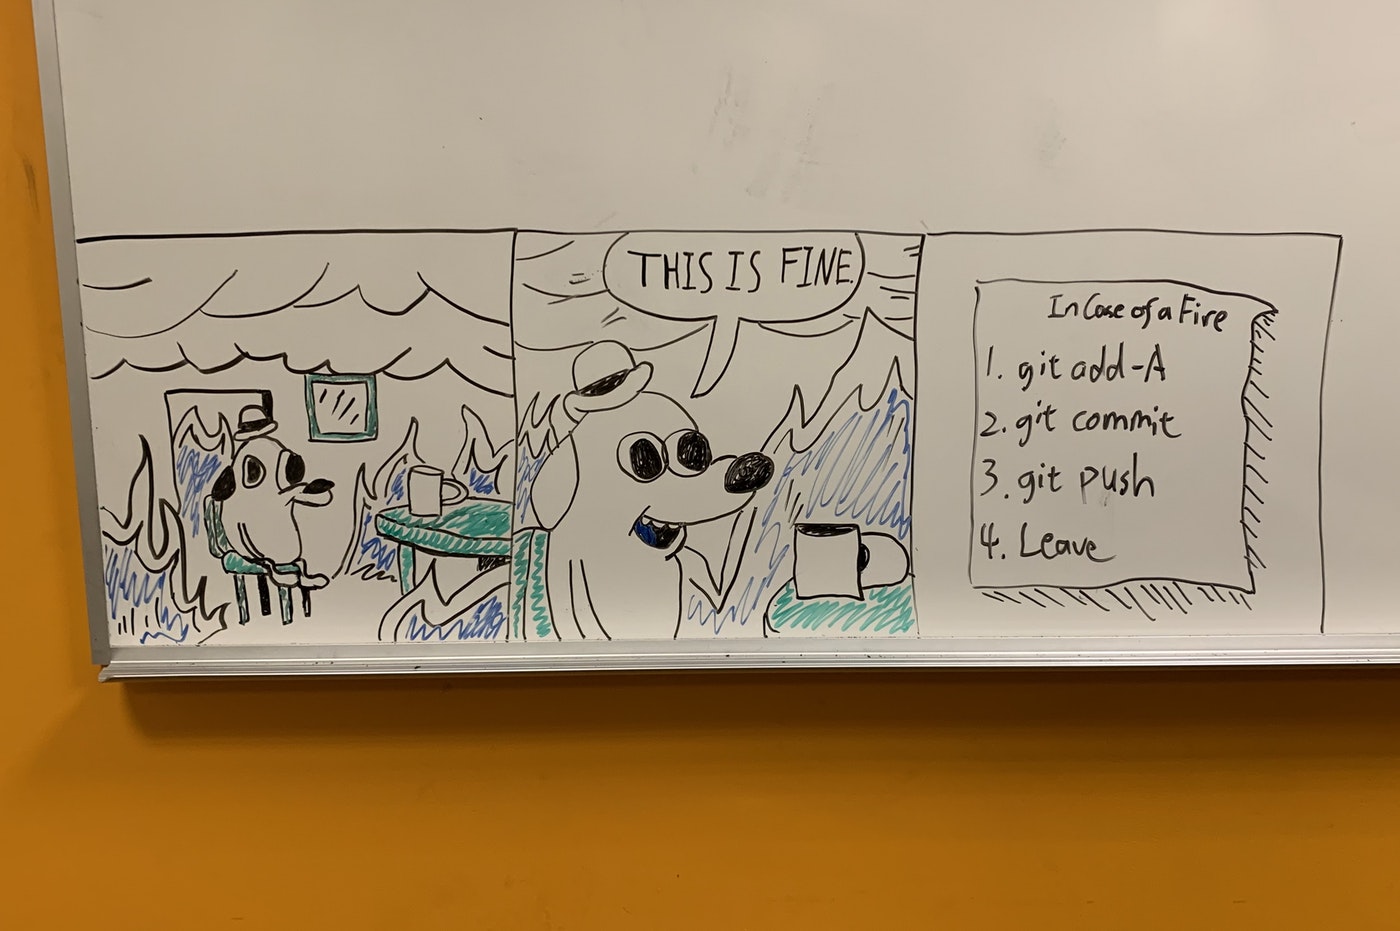 THIS IS FINE.
In Case of a Fire
1. git add -A
2. git commit
3. git push
4. Leave